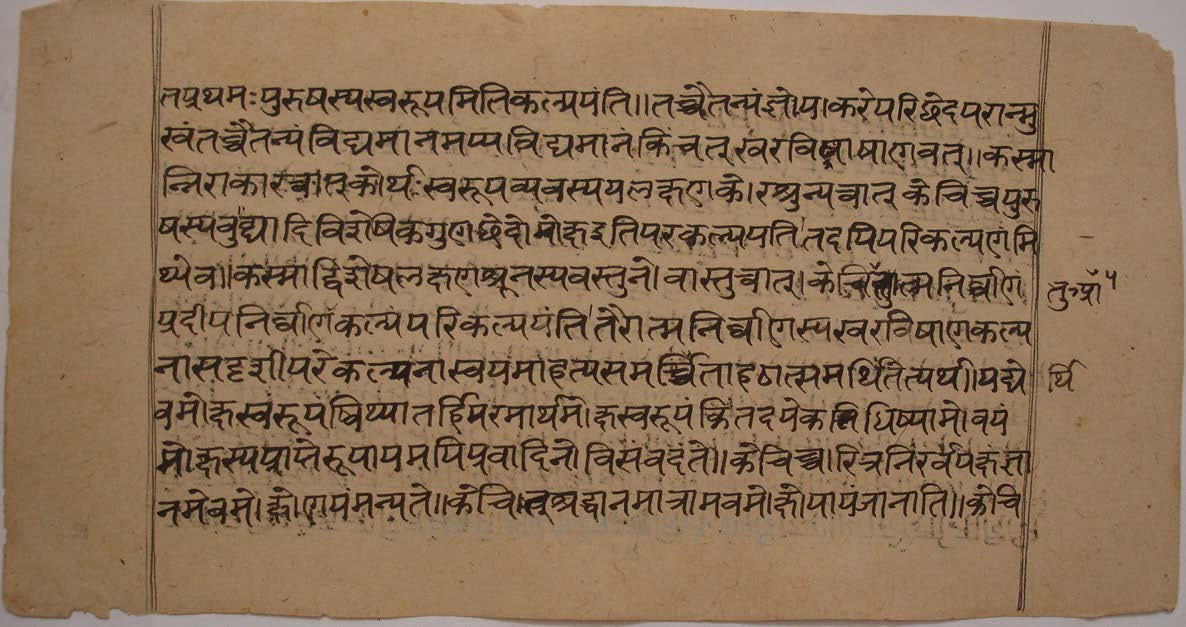 तप्रथमःपुरुषस्यस्वरूपमितिकल्पयंति।।तच्चैतन्यंज्ञेयाकारपरिछेदपरान्मु
खंतच्चैतन्यंविद्यमानमप्यविद्यमानंकिंचत्खरविषाणवत्।।कस्मा
न्निराकारत्वात्कोर्थःस्वरूपव्यवस्ययलक्षणकोरश्रुन्यत्वात्केचिच्चपुरु
षस्यवुद्ध्यादिविशेषिकगुणछेदोमोक्षइतिपरकल्पयति।तदपिपरिकल्पणंमि
थ्येव।।कस्माद्विशेषलक्षणश्रूनस्यवस्तुनोवास्तुत्वात्।केचित्तुात्मनिर्व्वाणं तु॰प्रा॰५
प्रदीपनिर्व्वाणकल्पंपरिकल्पयंति।तैरात्मनिर्व्वाणस्यखरविषाणकल्प
नासदृशीपरेकल्पनास्वयमाहत्यसमर्थिताहठात्समर्थितेत्यर्थः।यद्ये र्थि
वंमोक्षस्वरूपंमिथ्यातर्हिपरमार्थमोक्षस्वरूपंकिंतदग्रेकथयिष्यामोवयं
मोक्षस्यप्राप्तेरूपायमपिप्रवादिनोविसंवदंते।।केचिच्चारित्रनिरर्वपेक्षज्ञा
नमेवमोक्षोपायंमन्यते।।केचित्श्रद्धानमात्रामवमोक्षोपायंजानाति।।केचि